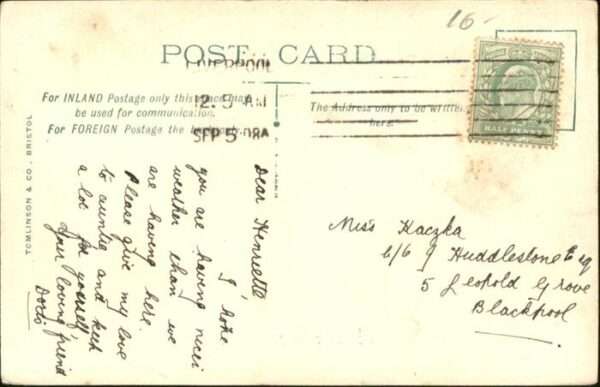 16-
POST CARD
LIVERPOOL
12.5 AM
SEP 5
For INLAND Postage only this space may
be used for communication.
For FOREIGN Postage the back only.
The Address only to be written
here.
HALF PENNY
TOMLINSON & CO., BRISTOL
Dear Henriette,
I hope
you are having nicer
weather than we
are having here.
Please give my love
to auntie and keep
a lot for yourself.
Your loving friend
Doris
Miss Kaczka
c/o J Huddlestone Esq
5 Leopold Grove
Blackpool